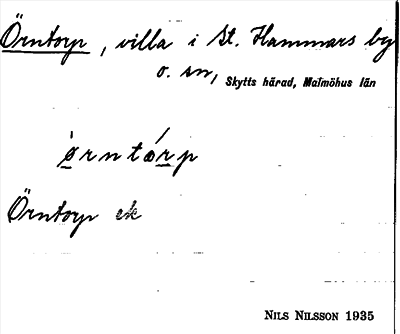 Örntorp, villa i St. Hammars by
o. sn, Skytts härad, Malmöhus län
ø̀rntǽrp
Örntorp ek
NILS NILSSON 1935